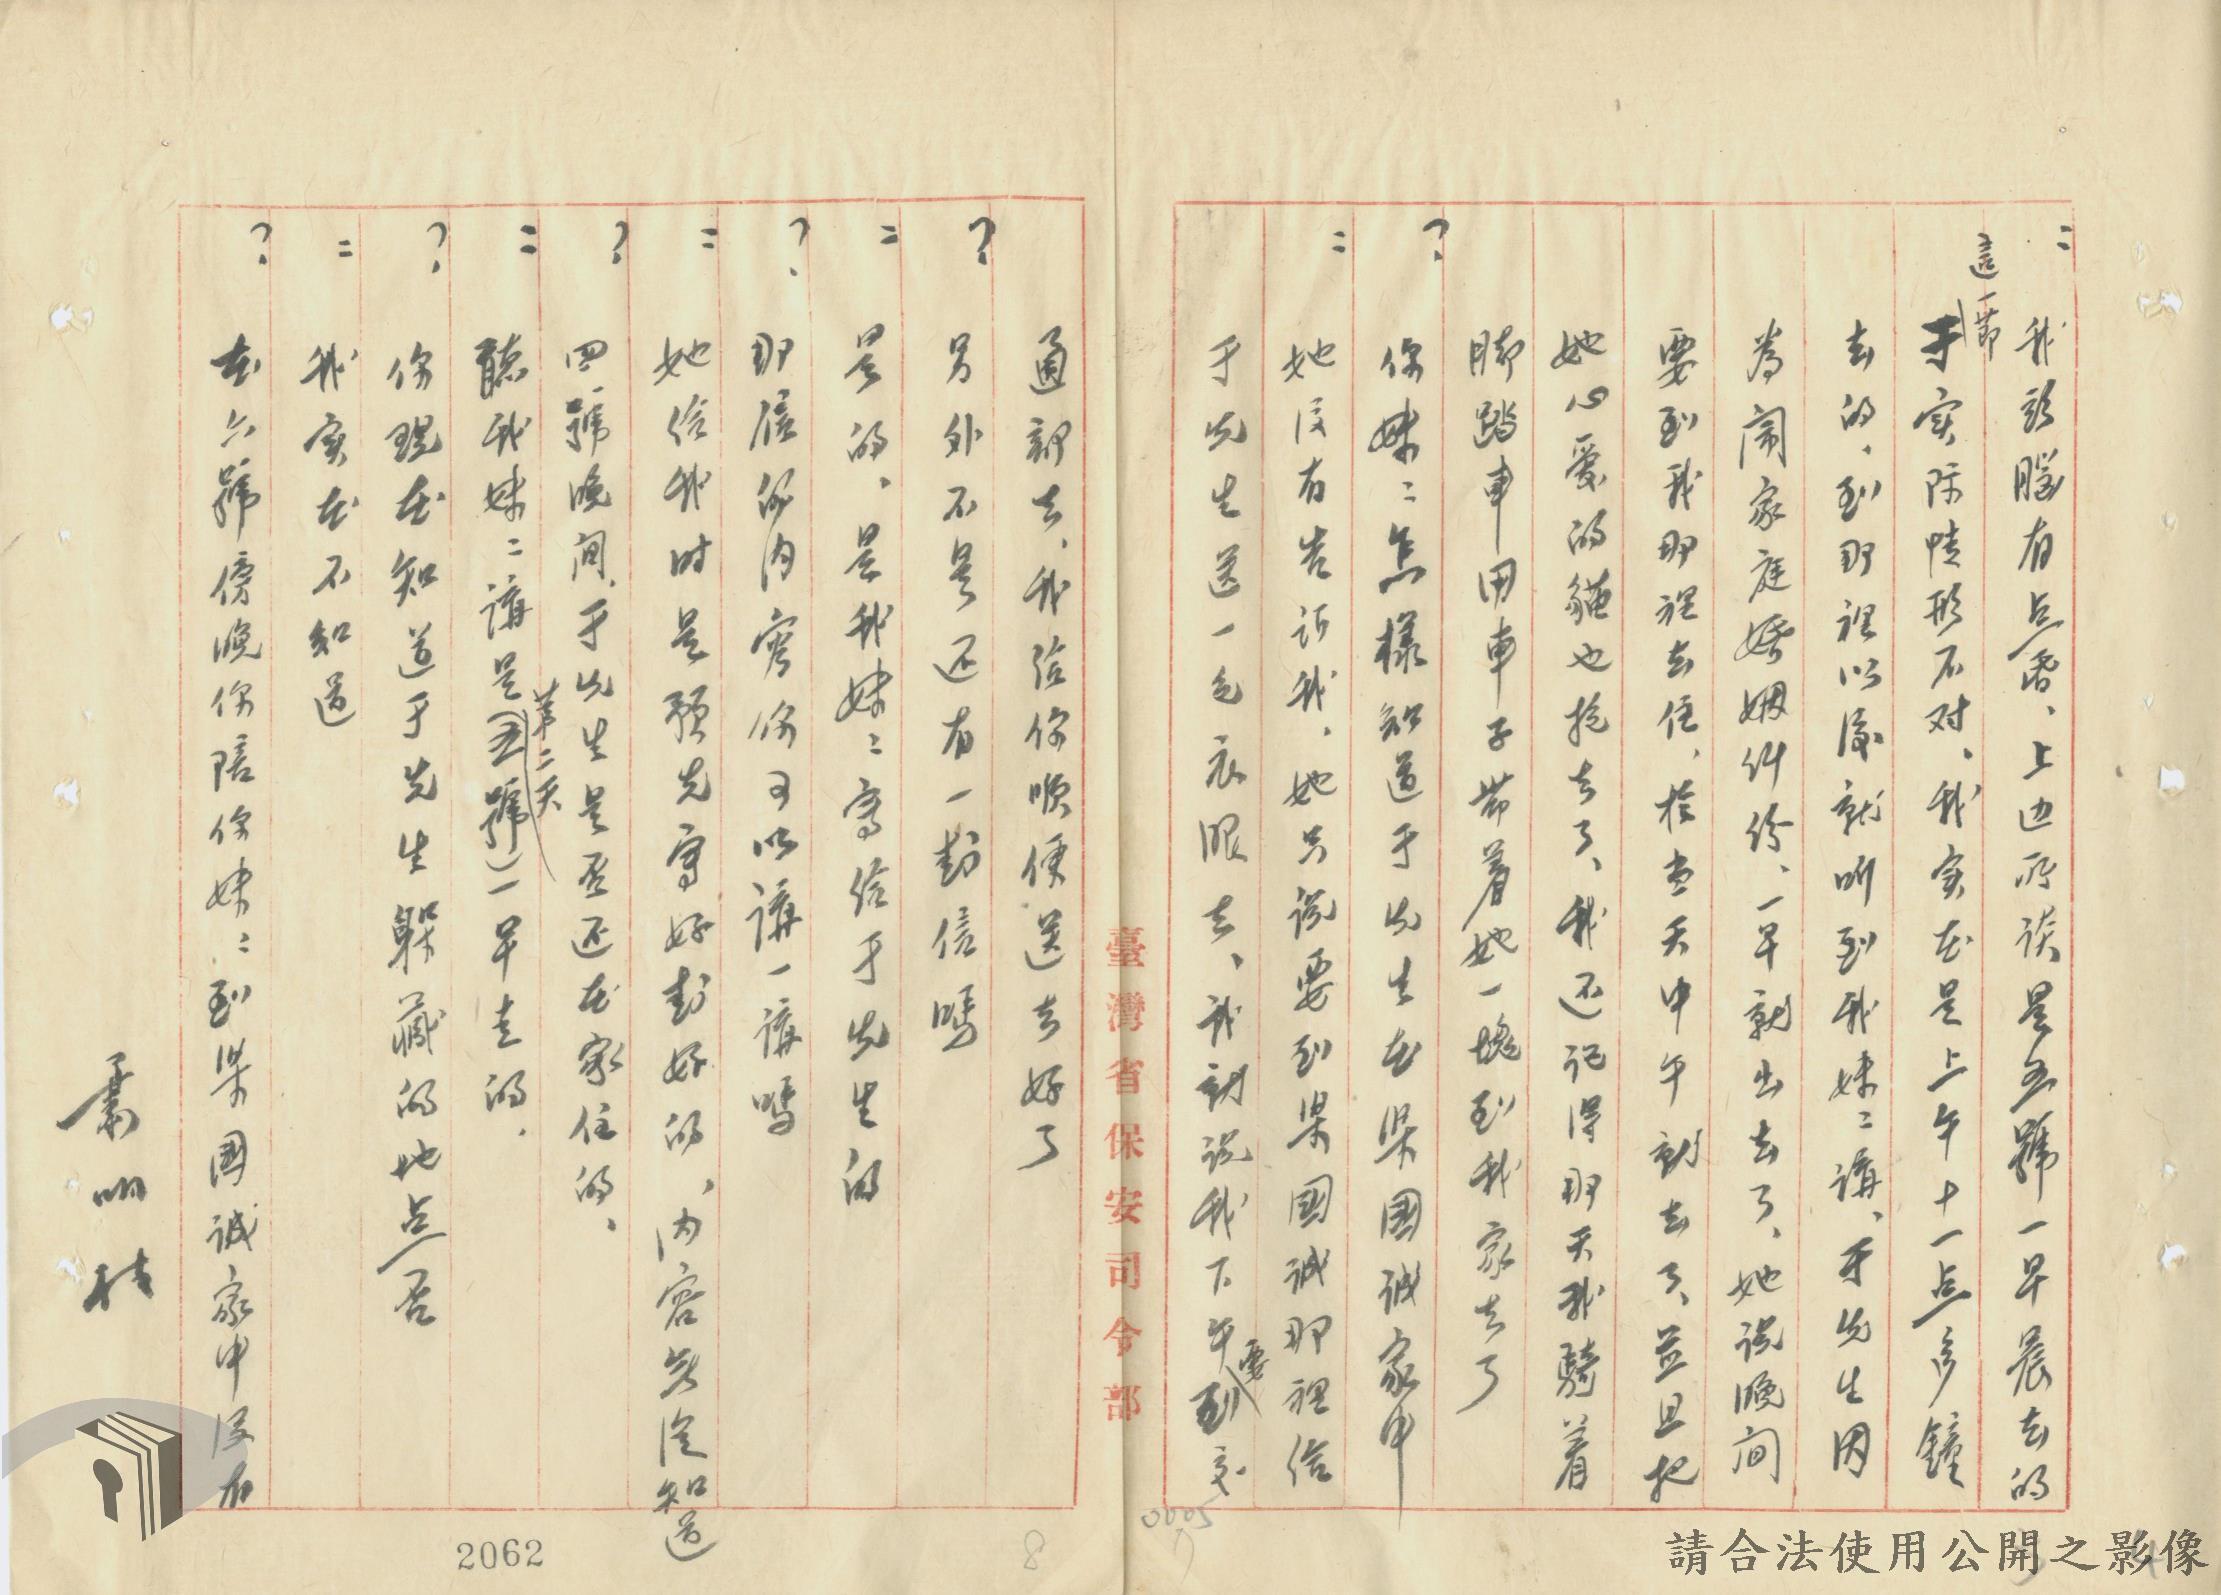 ：我頭腦有点昏、上边所談是五號一早晨去的
這一節于实际情形不对、我实在是上午十一点多鐘
去的、到那裡以後就听到我妹：講、于先生因
為鬧家庭婚姻糾紛、一早就出去了、她說晚间
要到我那裡去住、於当天中午就去了、並且把
她心爱的貓也抱去了、我还记得那天我騎着
脚踏車用車子帶着她一塊到我家去了
？你妹：怎樣知道于先生在渠國诚家中
：她没有告訴我、她只說要到渠國诚那裡给
于先生送一包衣服去、我就说我下午要到交
通部去、我给你顺便送去好了
？另外不是还有一封信嗎
：是的、是我妹：寫给于先生的
？那信的内容你可以講一講嗎
：她给我时是預先寫好封好的、内容無從知道
？四號晚间、于先生是否还在家住的、
：聽我妹：講是第二天(五號)一早走的.
？你現在知道于先生躲藏的地点否
：我实在不知道
？在六號傍晚你陪你妹：到渠國诚家中没有
肅明
臺灣省保安司令部
2062
8
0005
請合法使用公開之影像